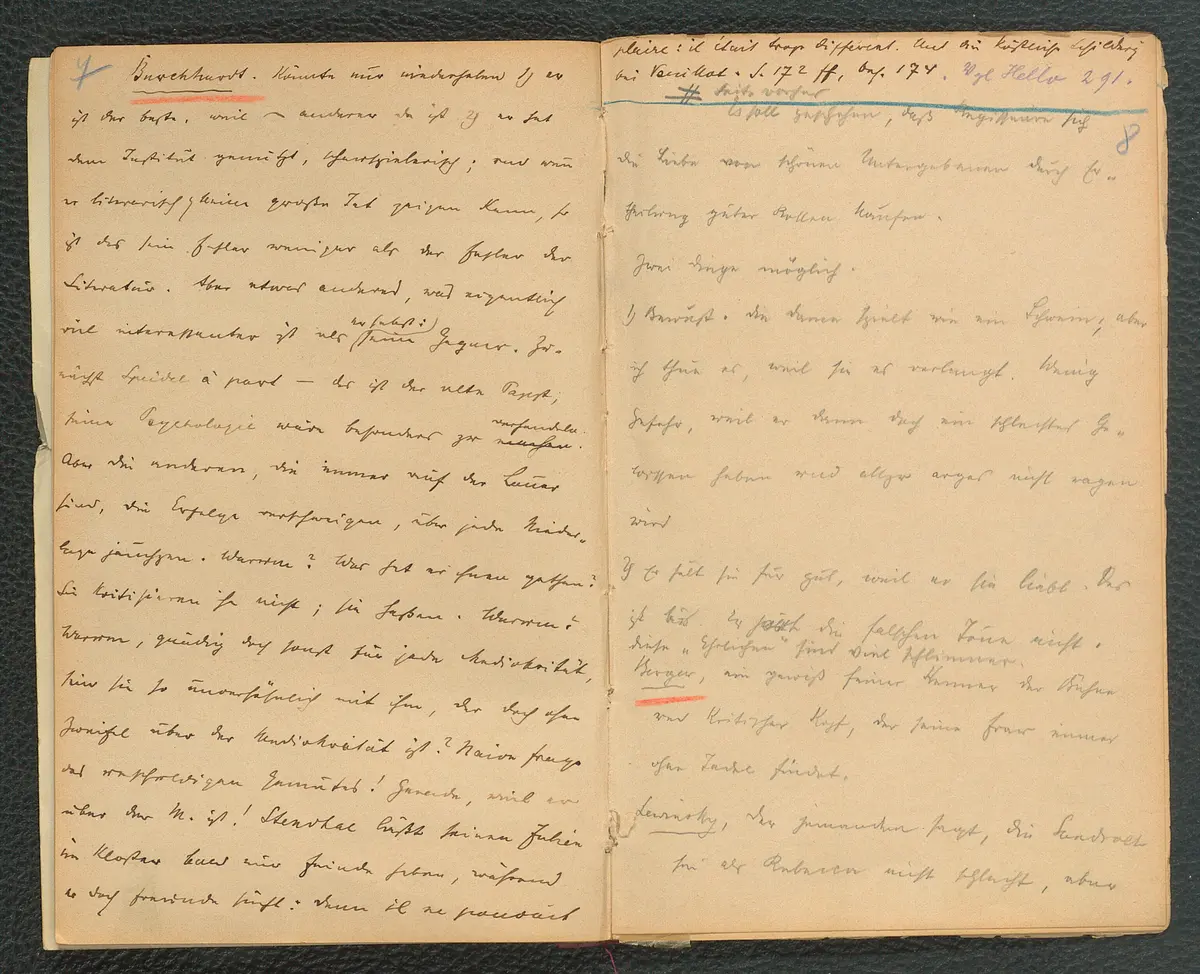 7
Burckhardt. Könnte nur wiederholen 1) er
ist der beste, weil – anderer da ist 2) er hat
dem Institut genützt, schauspielerisch; und wenn
er literarisch keine große Tat zeigen kann, so
ist das sein Fehler weniger als der Fehler der
Literatur. Aber etwas anderes, was eigentlich
viel interessanter ist als
er selbst:)
seine Gegner. Zu-
nächst Speidel à part – das ist der alte Papst;
seine Psychologie wäre besonders zu
verhandeln.
machen.
Aber die anderen, die immer auf der Lauer
sind, die Erfolge verschweigen, über jede Nieder-
lage jauchzen. Warum? Was hat er ihnen gethan?
Sie kritisieren ihn nicht; sie hassen. Warum?
Warum, gnädig doch sonst für jede Mediokrität,
sind sie so unversöhnlich mit ihm, der doch ohne
Zweifel über der Mediokrität ist? Naive Frage
des unschuldigen Gemütes! Gerade, weil er
über der M. ist! Stendhal läßt seinen Julien
im Kloster bald nur Feinde haben, während
er doch Freunde sucht: denn il ne pouvait
plaire: il était trop différent. Und die köstliche Schilderung
bei Vauillot. S. 172 ff, bes. 174. Vgl Hello 291.
Seite vorher
8
Es soll geschehen, daß Regisseure sich
die Liebe von schönen Untergebenen durch Er-
theilung guter Rollen kaufen.
Zwei Dinge möglich.
1) Bewußt. Die Dame spielt wie ein Schwein; aber
ich thue es, weil sie es verlangt. Wenig
Gefahr, weil er dann doch ein schlechtes Ge-
wissen haben und allzu arges nicht wagen
wird
2) Er hält sie für gut, weil er sie liebt. Das
ist bös. Er hört die falschen Töne nicht.
diese „Ehrlichen" sind viel schlimmer.
Berger, ein gewiß feiner Kenner der Bühne
und kritischer Kopf, der seine Frau immer
ohne Tadel findet.
Lewinsky, der jemandem sagt, die Sandrock
sei als Rebecca nicht schlecht, aber